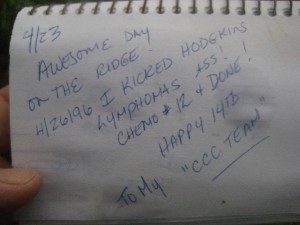 4/23
AWESOME DAY
ON THE RIDGE!
4/26/96 I KICKED HODGKINS
LYMPHOMAS ASS!!
CHEMO #12 & DONE!
HAPPY 14TH
TO MY "CCC TEAM"